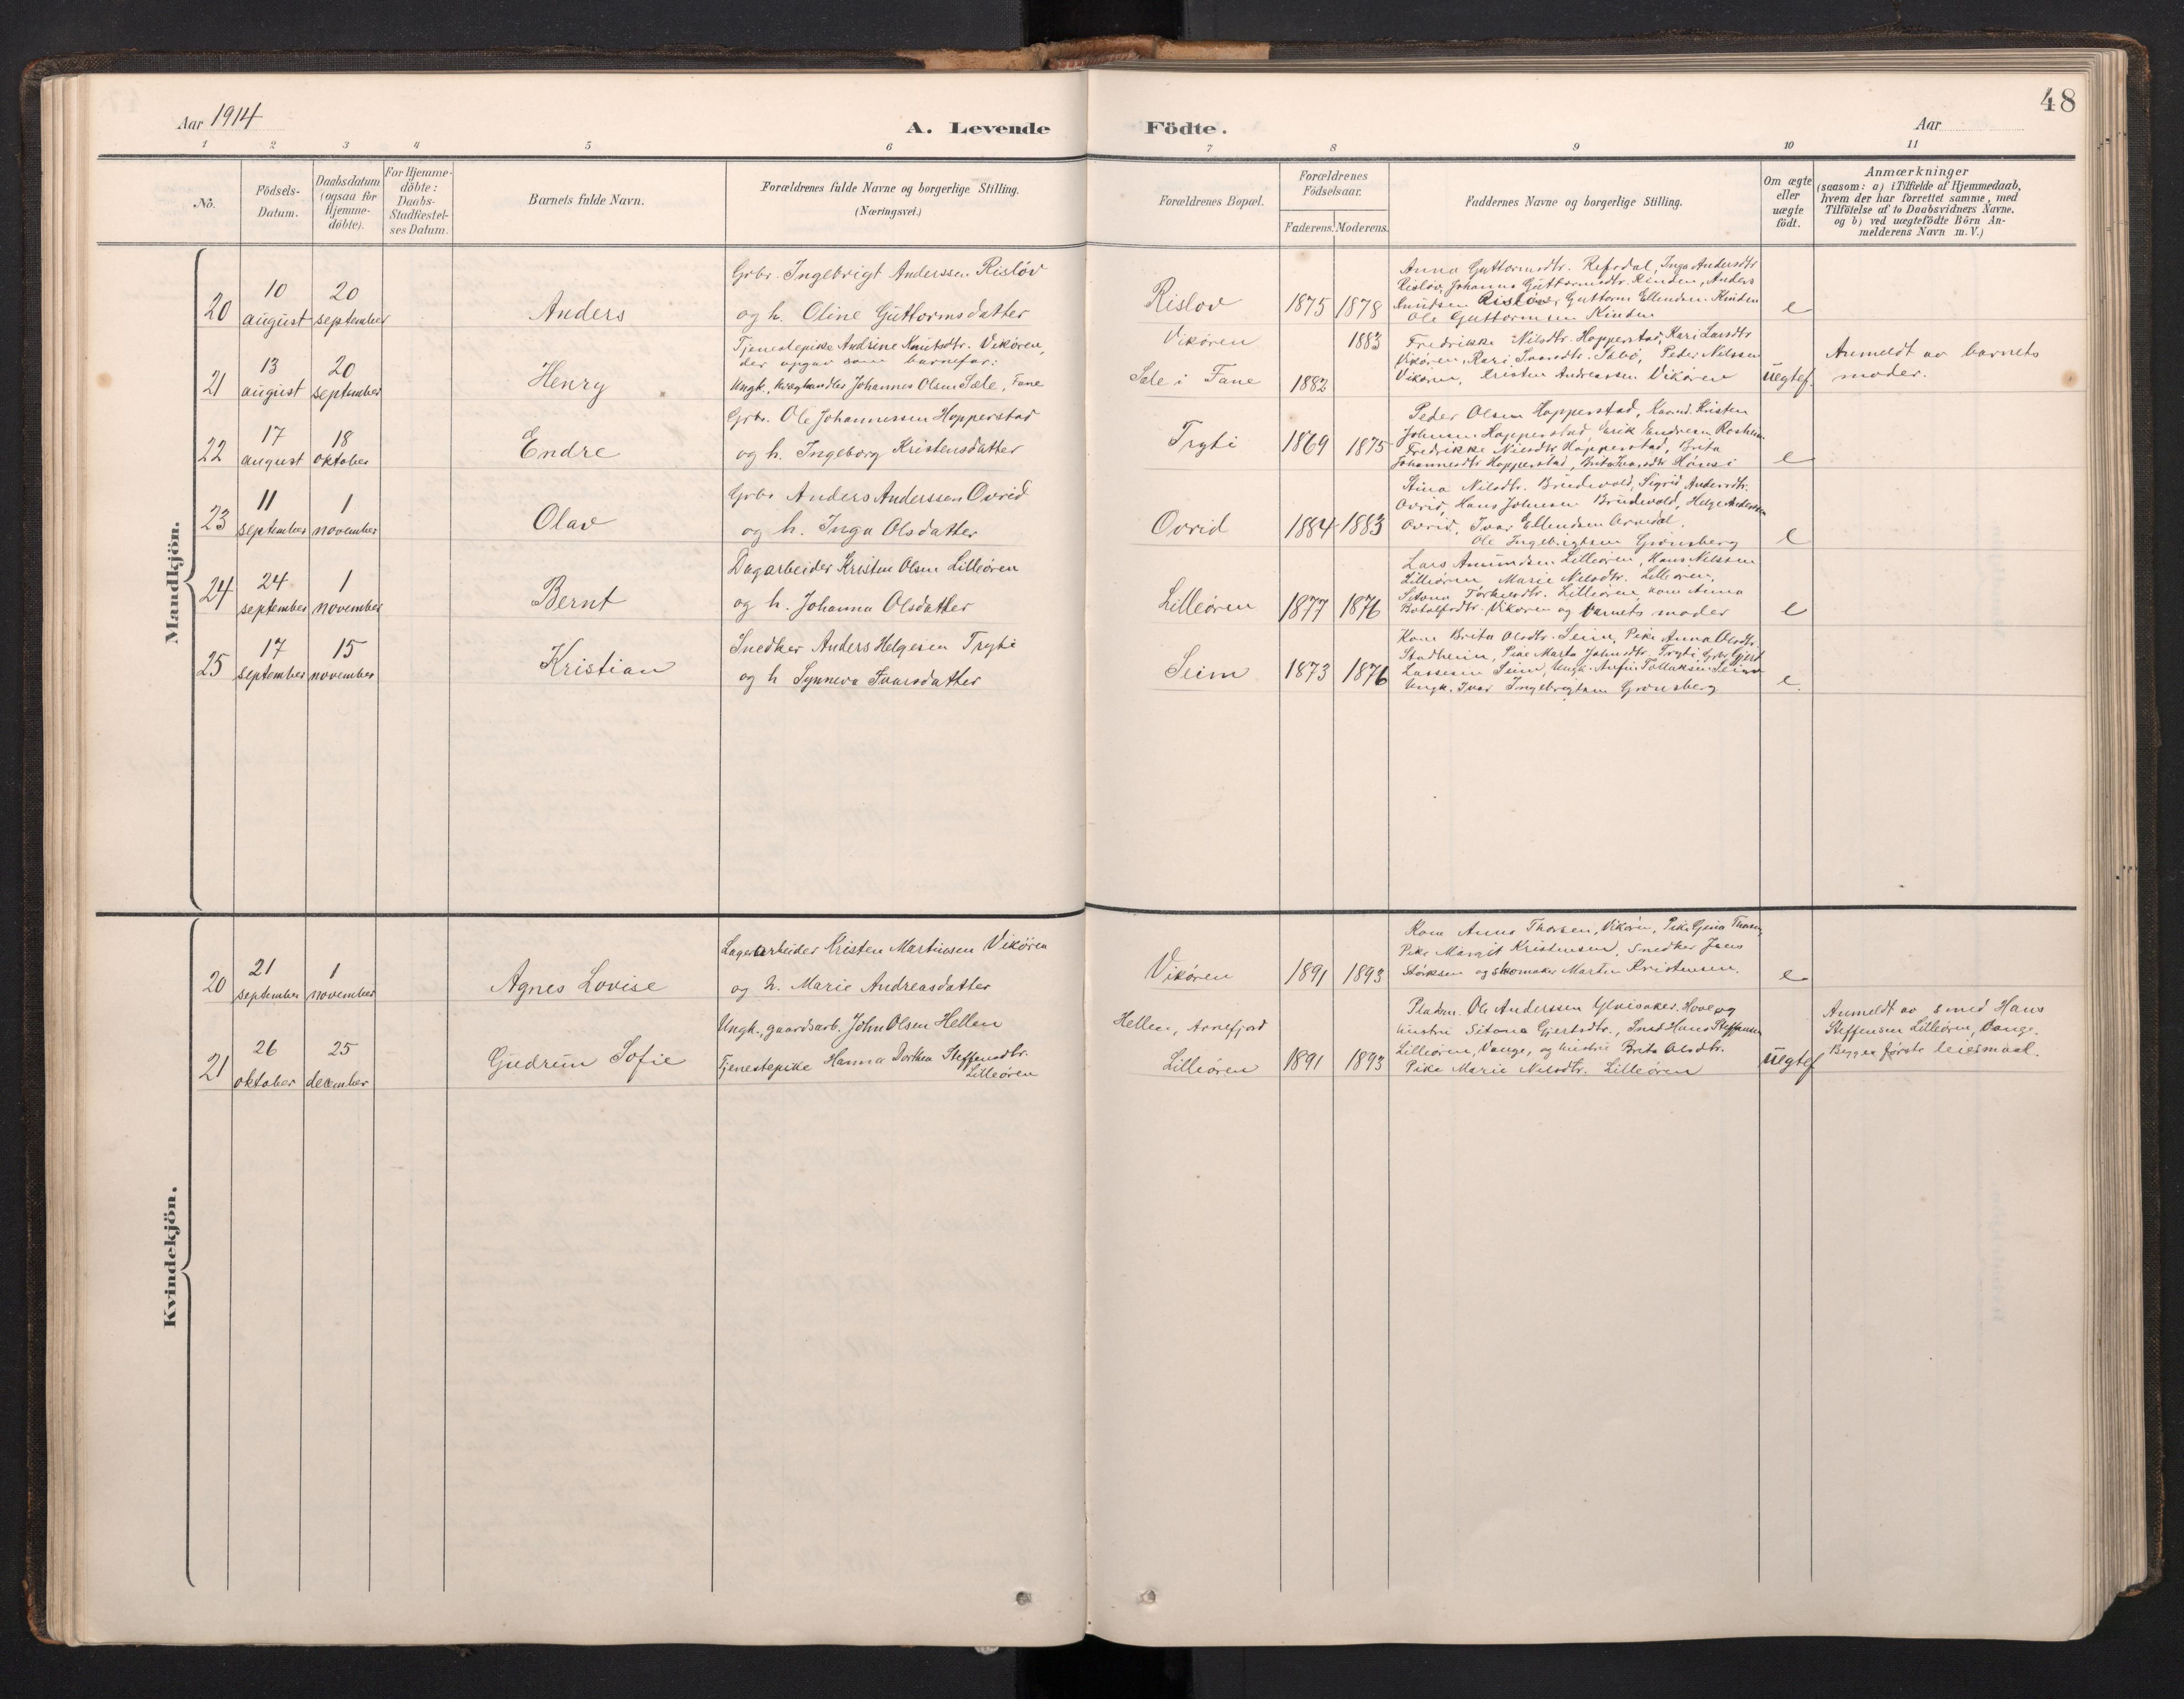 48
Aar 1914
A. Levende Födte.
Aar
1 2 3 4 5 6 7 8 9 10 11
No.
Födsels-
Datum.
Daabsdatum
(ogsaa for
Hjemme-
döbte).
For Hjemme-
döbte:
Daabs-
Stadfæstel-
ses Datum.
Barnets fulde Navn.
Forældrenes fulde Navne og borgerlige Stilling.
(Næringsvei.)
Forældrenes Bopæl.
Forældrenes
Födselsaar.
Faderens. Moderens.
Faddernes Navne og borgerlige Stilling.
Om ægte
eller
uægte
födt.
Anmærkninger
(saasom: a) i Tilfælde af Hjemmedaab,
hvem der har forrettet samme, med
Tilföielse af to Daabsvidners Navne,
og b) ved uægtefödte Börn An-
melderens Navn m. V.)
Mandkjön.
20
10
august
20
september
Anders
Grbr. Ingebrigt Anderssen Rislöv
og h. Oline Guttormsdatter
Rislov
1875 1878
Anna Guttormsdtr. Refsdal, Inga Andersdtr
Rislov, Johanna Guttormsdtr. Rinden, Anders
Knudsen Rislöv, Guttorm Ellendsen Rinden
Ole Guttormsen Rinden
e
21
13
august
20
september
Henry
Tjenestepike Andrine Knutsdtr. Vikören,
der opgav som barnefar:
Ungk. kræghandler Johannes Olsen Sæle, Fane
Vikören
Sæle i Fane
1882
1883
Fredrikke Nilsdtr. Hopperstad, Kari Larsdtr
Vikören, Kari Ivarsdtr. Sæbö, Peder Nilssen
Vikören, Kristen Andreassen Vikören
uegtef.
Anmeldt av barnets
moder.
22
17
august
18
oktober
Endre
Grbr. Ole Johannessen Hopperstad
og h. Ingeborg Kristensdatter
Tryti
1869 1875
Peder Olsen Hopperstad, Kaarmd. Kristen
Johnsen Hopperstad, Erik Endresen Rosheim
Fredrikke Nilsdtr. Hopperstad, Brita
Johannesdtr Hopperstad, Brita Ivarsdtr Hönsi
e
23
11
september
1
november
Olav
Grbr Anders Anderssen Ovrid
og h. Inga Olsdatter
Ovrid
1884 1883
Stina Nilsdtr. Brudevold, Sigrid Andersdtr.
Ovrid, Hans Johnsen Brudevold, Helge Anderssen
Ovrid, Ivar Ellendsen Arvedal.
Ole Ingebrigtsen Grönsberg
e
24
24
september
1
november
Bernt
Dagarbeider Kristen Olsen Lilleören
og h. Johanna Olsdatter
Lilleören
1877 1876
Lars Amundsen Lilleören, Hans Nilssen
Lilleören, Marie Nilsdtr. Lilleören,
Sitona Torkelsdtr. Lilleören, kone Anna
Botolfsdtr. Vikoren og barnets moder
e
25
17
september
15
november
Kristian
Snedker Anders Helgesen Tryti
og h Synneva Ivarsdatter
Seim
1873 1876
Kone Brita Olsdtr. Seim, Pike Anna Olsdtr.
Stadheim, Pike Marta Johnsdtr. Tryti, Grbr. Gjert
Lassesen Seim, Ungk. Anfin Tollaksen Seim
Ungk. Ivar Ingebrigtsen Grönsberg
e.
Kvindekjön.
20
21
september
1
november
Agnes Lovise
Lagerarbeider Kristen Martinsen Vikören
og h. Marie Andreasdatter
Vikören
1891 1893
Kone Anna Thorsen, Vikören, Pike Gjina Thorsen,
Pike Margit Kristensen, Snedker Jens
Störksen og skomaker Martin Kristensen.
e
21
26
oktober
25
december
Gudrun Sofie
Ungk., gaardsarb. John Olsen Hellen
Tjenestepike Hanna Dorthea Steffensdtr.
Lilleören
Hellen, Arnefjord
Lilleören
1891 1893
Pladsm. Ole Anderssen Hove og
hustru Sitona Gjertsdtr., Smed Hans Steffensen
Lilleören, Vange, og hustru Brita Olsdtr.
Pike Marie Nilsdtr. Lilleören
uegtef
Anmeldt av smed Hans
Steffensen Lilleören, Vange.
Begges første leiermaal.